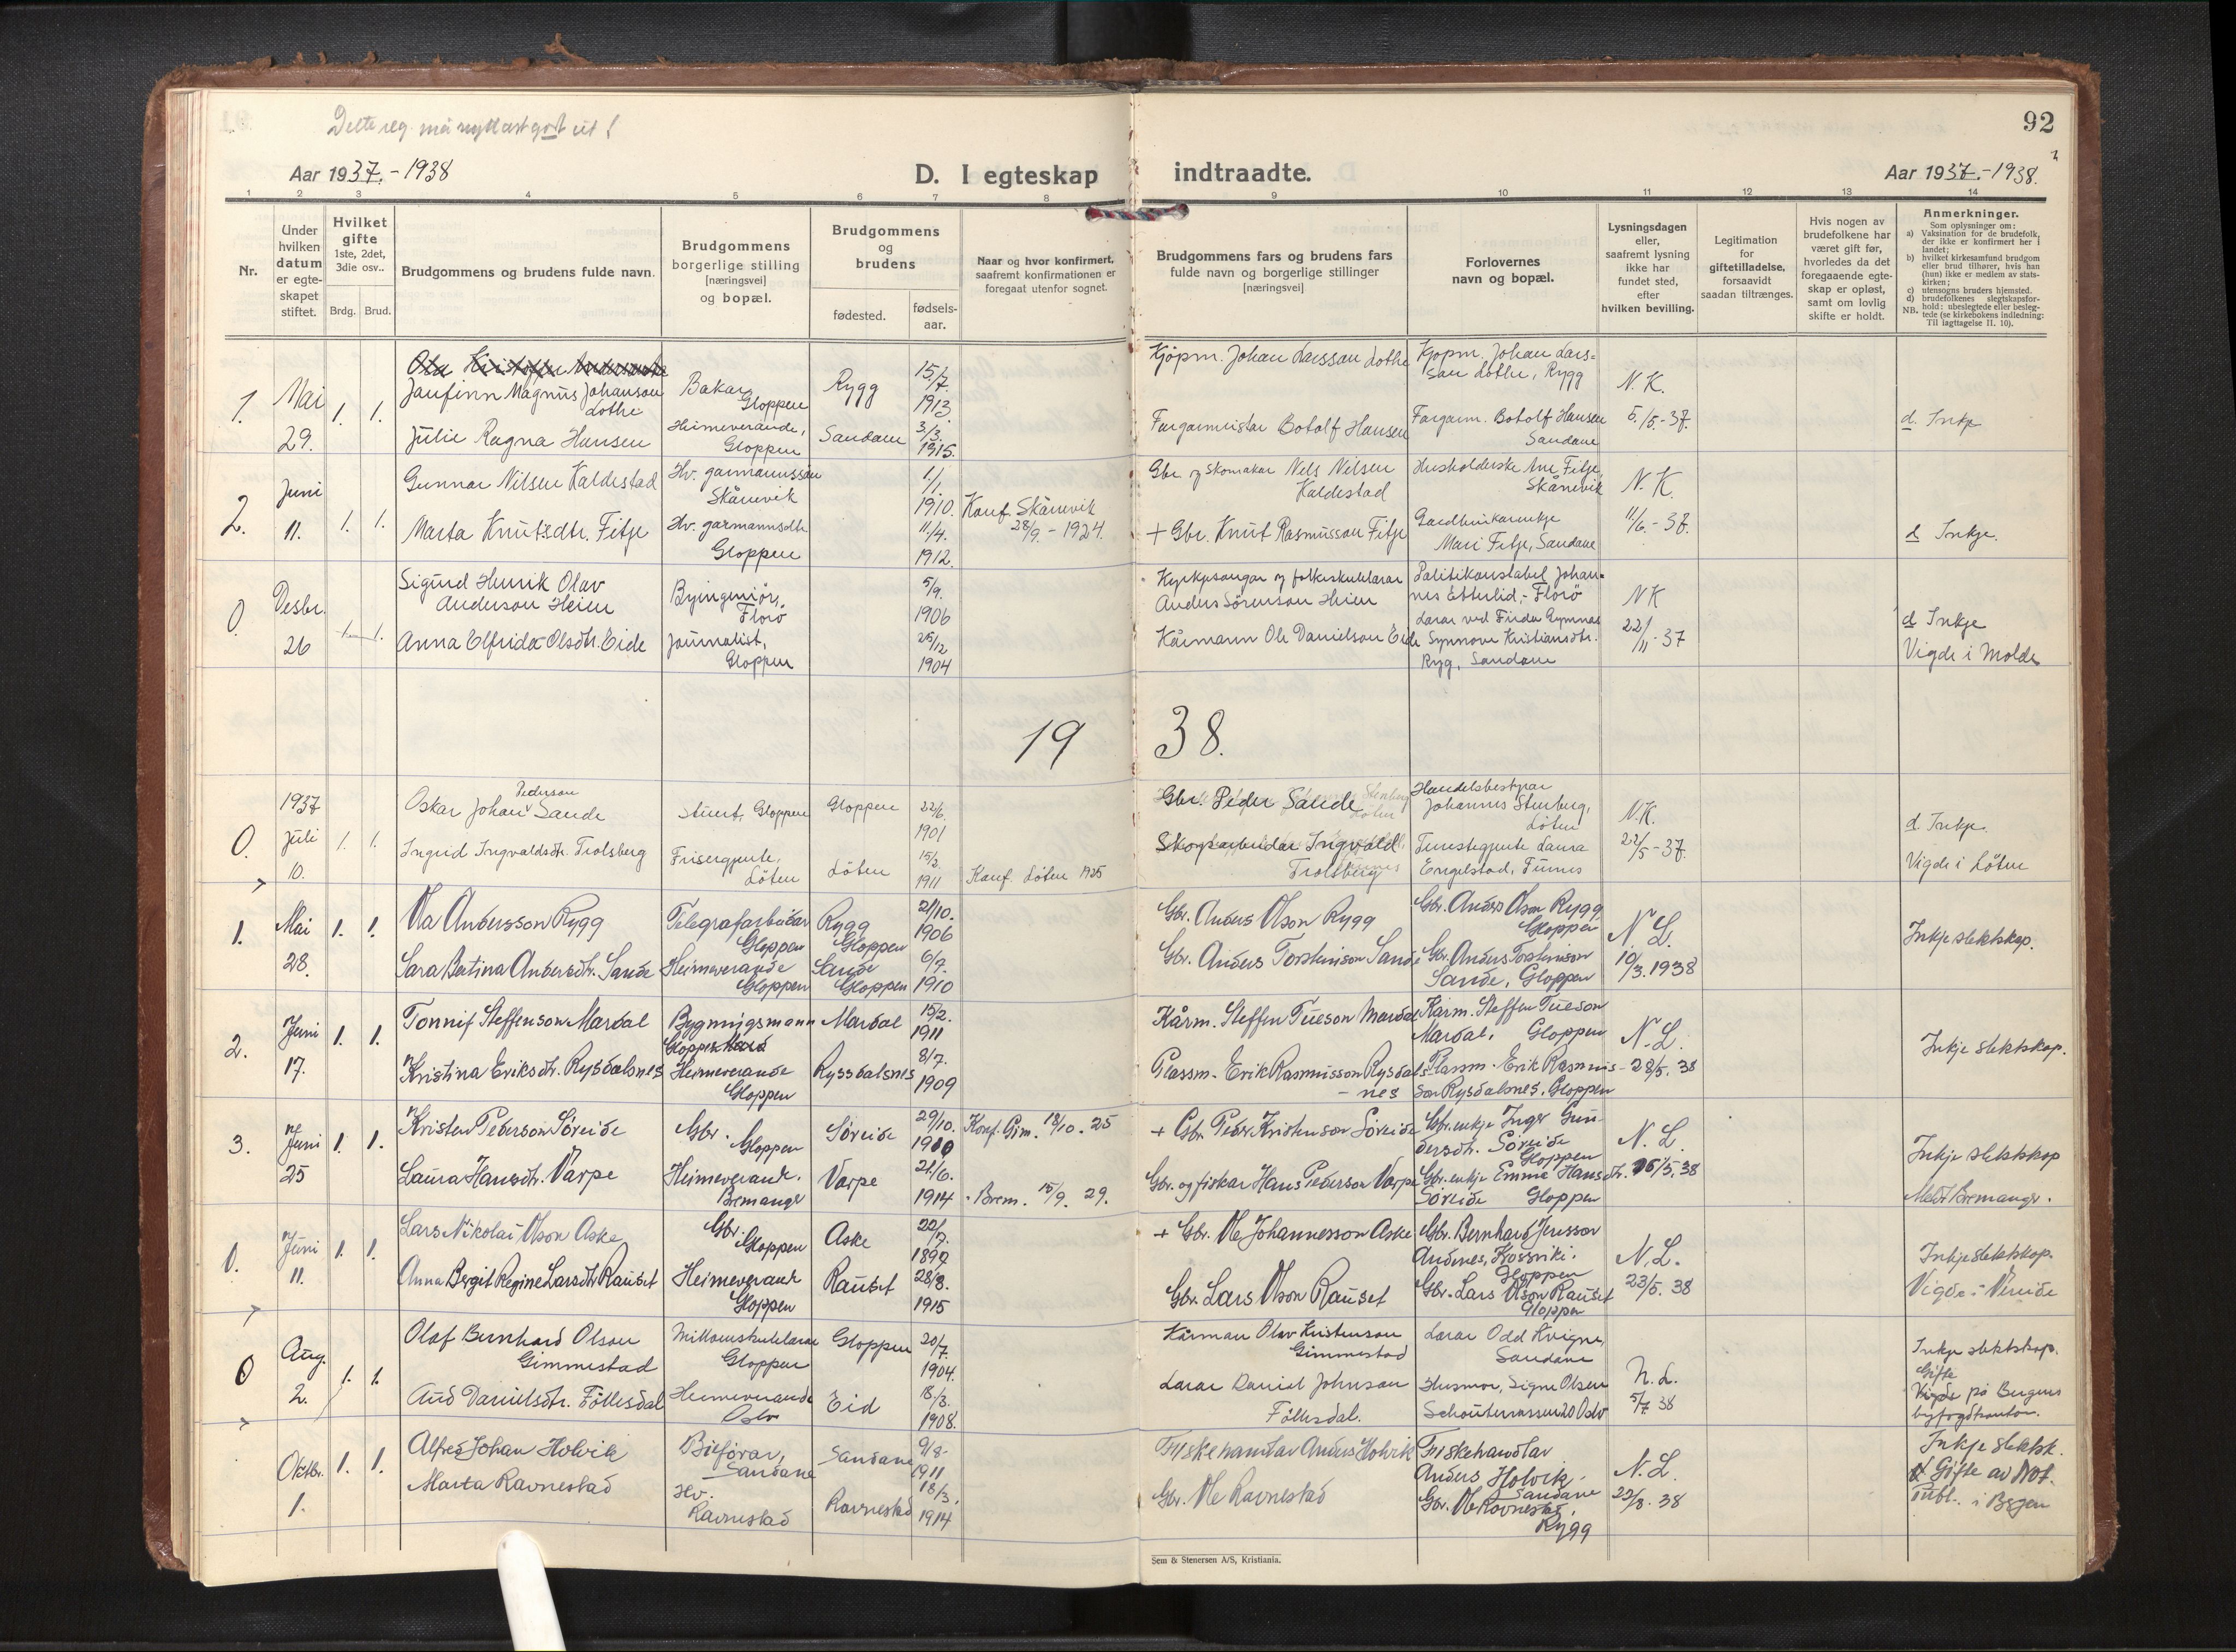 92
Dette reg. må
Aar 1937.-1938
D. I egteskap indtraadte.
Aar 1937.-1938.
1 2 3 4 5 6 7 8 9 10 11 12 13 14
Nr.
Under hvilken datum er egteskapet stiftet.
Hvilket gifte
1ste, 2det, 3die osv..
Brdg. Brud.
Brudgommens og brudens fulde navn.
Brudgommens borgerlige stilling [næringsvei] og bopæl.
Brudgommens og brudens
fødested.
fødsels-aar.
Naar og hvor konfirmert, saafremt konfirmationen er foregaat utenfor sognet.
Brudgommens fars og brudens fars fulde navn og borgerlige stillinger [næringsvei]
Forlovernes navn og bopæl.
Lysningsdagen eller, saafremt lysning ikke har fundet sted, efter hvilken bevilling.
Legitimation for giftetilladelse, forsaavidt saadan tiltrænges.
Hvis nogen av brudefolkene har været gift før, hvorledes da det foregaaende egteskap er opløst, samt om lovlig skifte er holdt.
Anmerkninger.
Som oplysninger om:
a) Vaksination for de brudefolk, der ikke er konfirmert her i landet;
b) hvilket kirkesamfund brudgom eller brud tilhører, hvis han (hun) ikke er medlem av statskirken;
c) utensogns bruders hjemsted.
d) brudefolkenes slegtskapsforhold: ubeslegtede eller beslegtede (se kirkebokens indledning: Til Iagttagelse II. 10).
NB.
1. Mai 29. 1. 1.
Janfinn Magnus Johanson Lothe
Bakar Gloppen
Rygg
15/7 1913
Kjøpm. Johan Larsson Lothe
Kjøpm. Johan Larsson Lothe, Rygg
N.K.
5/5.-37.
Julie Ragna Hansen
Heimeverande, Gloppen
Sandane
3/3. 1915.
Fargarmeistar Botolf Hansen
Fargarm. Botolf Hansen Sandane
d. Inkje
2. Juni 11. 1. 1.
Gunnar Nilsen Kaldestad
Hv. garmannsson Skånevik
1/1. 1910.
Konf. Skånevik 28/9.-1924.
Gbr. og Skomakar Nels Nilsen Kaldestad
Husholderske Ane Fitje, Skånevik
N.K.
11/6.-37.
Marta Knutsdtr. Fitje
Hv. garmannsdtr. Gloppen
11/4. 1912.
+ Gbr. Knut Rasmusson Fitje
Gardbrukarenkje Mari Fitje, Sandane
d Inkje.
0. Desbr. 26 1. 1.
Sigurd Henrik Olav Anderson Heien
Byingeniør, Florö
5/9. 1906
Kyrkjesongar og folkeskulelærar Anders Sörenson Heien
Politikonstabel Johannes Etterlid,- Florö
NK
22/11-37
Anna Elfrida Olsdtr. Eide
Journalist, Gloppen
25/12 1904
Kårmann Ole Danielson Eide
Lærar ved Firda Gymnas Synnøve Kristiansdtr. Ryg, Sandane
d Inkje
Vigde i Molde
19 38.
0. 1937 Juli 10. 1. 1.
Oskar Johan Pederson Sande
Stuert, Gloppen
Gloppen
22/6. 1901
Gbr. Peder Sande
Handelsbestyrar Johannes Stenberg, Löten
N.K.
22/5-37.
Ingrid Ingvaldsdtr. Trolsberg
Frisergjente, Löten
Löten
15/2 1911
Konf. Löten 1925
Skogsarbeidar Ingvald Trolsberg
Tenestegjente Laura Engelstad, Furnes
d. Inkje.
Vigde i Löten
1. Mai 28. 1. 1.
Ola Andersson Rygg
Telegrafarbeidar Gloppen
Rygg Gloppen
21/10. 1906
Gbr. Anders Olson Rygg
Gbr. Anders Olson Rygg, Gloppen
N L.
10/3. 1938
Sara Bertina Andersdtr. Sande
Heimeverande Gloppen
Sande Gloppen
6/7. 1910
Gbr. Anders Torsteinson Sande
Gbr. Anders Torsteinson Sande, Gloppen
Inkje slektskap.
2. Juni 17. 1. 1.
Tonnif Steffenson Mardal
Bygningsmann Gloppen
Mardal
15/2. 1911
Kårm. Steffen Tueson Mardal
Kårm. Steffen Tueson Mardal, Gloppen
N.L.
28/5. 38
Kristina Eriksdtr. Rysdalsnes
Heimeverande Gloppen
Ryssdalsnes
8/7. 1909
Plassm. Erik Rasmusson Rysdals-nes
Plassm. Erik Rasmusson Rysdalsnes, Gloppen
Inkje slektskap.
3. Juni 25 1. 1.
Kristen Pederson Söreide
Gbr. Gloppen
Söreide
29/10. 1910
Konf. Gim. 18/10. 25
+ Gbr. Peder Kristenson Söreide
Gbr.enkje Inger Gundersdtr. Söreide Gloppen
N.L.
Laura Hansdtr. Varpe
Heimeverande. Bremanger
Varpe
21/6. 1914
- Brem. 15/9. 29.
Gbr. og fiskar Hans Pederson Varpe
Gbr.enkje Emma Hansdtr. Söreide Gloppen
Inkje slektskap
0. Juni 11. 1. 1.
Lars Nikolai Olson Aske
Gbr. Gloppen
Aske
+ Gbr. Ole Johannesson Aske
Gbr. Bernhard Jensson Andenes, Gloppen
N.L.
23/5. 38
Anna Bergit Regine Larsdtr Rauset
Heimeverande Gloppen
Rauset
28/8. 1915
Gbr. Lars Olson Rauset
Gbr. Lars Olson Rauset Gloppen
Inkje slektskap.
0 Aug. 2. 1. 1.
Olaf Bernhard Olson Gimmestad
Millomskulelærar Gloppen
Gloppen
20/7. 1904.
Kårman Olav Kristenson Gimmestad
Lærar Odd Kvigne, Sandane
N.L.
5/7 38
Aud Danielsdtr. Föllesdal
Heimeverande Oslo
Eid
18/3. 1908.
Lærar Daniel Johnson Föllesdal.
Husmor, Signe Olsen Schouterrassen 20 Oslo
Inkje slektskap.
Gifte på Bergens byfogdkontor.
Oktbr. 1. 1. 1.
Alfred Johan Holvik
Bilförar, Sandane
Sandane
9/8- 1911
Fiskehandlar Anders Holvik
Fiskehandlar Anders Holvik- Sandane
N.L.
22/8. 38
Marta Ravnestad
Hv. Ravnestad
Ravnestad
18/3. 1914
Gbr. Ole Ravnestad
Gbr. Ole Ravnestad, Rygg
Inkje slektsk.
Gifte av Not. Publ. i Bergen
Sem & Stenersen A/S, Kristiania.